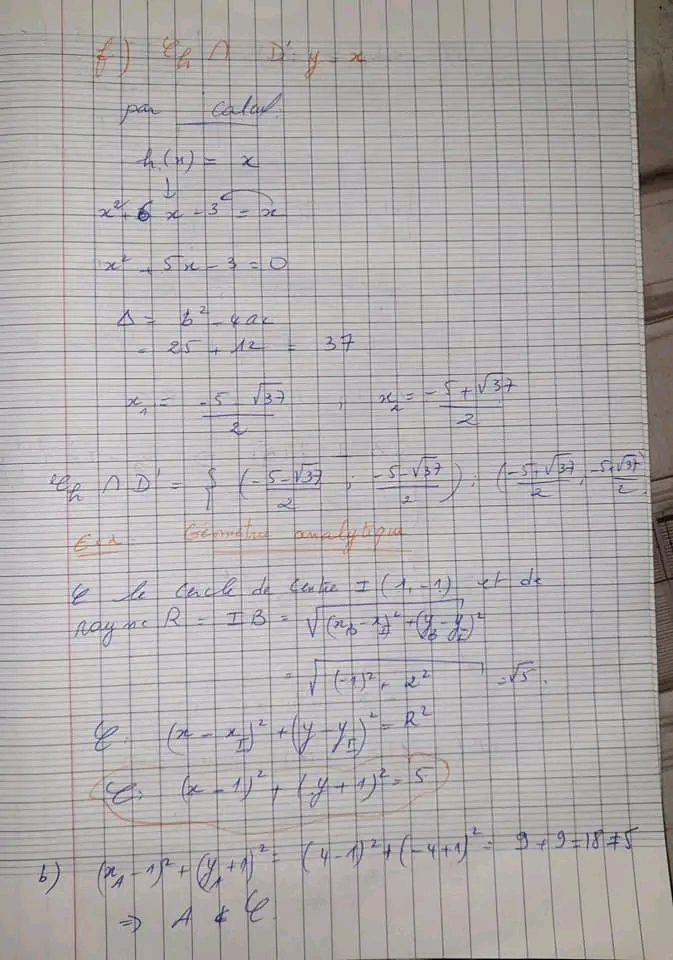 f) 𝒞h ∩ D' : y = x
par calcul.
h(x) = x
↓
x² + 6x - 3 = x
x² + 5x - 3 = 0
Δ = b² - 4ac
= 25 + 12 = 37
x₁ = (-5 - √37)/2 , x₂ = (-5 + √37)/2
𝒞h ∩ D' = { ((-5-√37)/2 ; (-5-√37)/2) ; ((-5+√37)/2 , (-5+√37)/2)
Géométrie analytique
𝒞 le cercle de centre I (1, -1) et de
rayon R = IB = √((x_B - x_I)² + (y_B - y_I)²)
= √((-1)² + 2²) = √5.
𝒞: (x - x_I)² + (y - y_I)² = R²
𝒞: (x - 1)² + (y + 1)² = 5
b) (x_A - 1)² + (y_A + 1)² = (4-1)² + (-4+1)² = 9 + 9 = 18 ≠ 5
⇒ A ∉ 𝒞